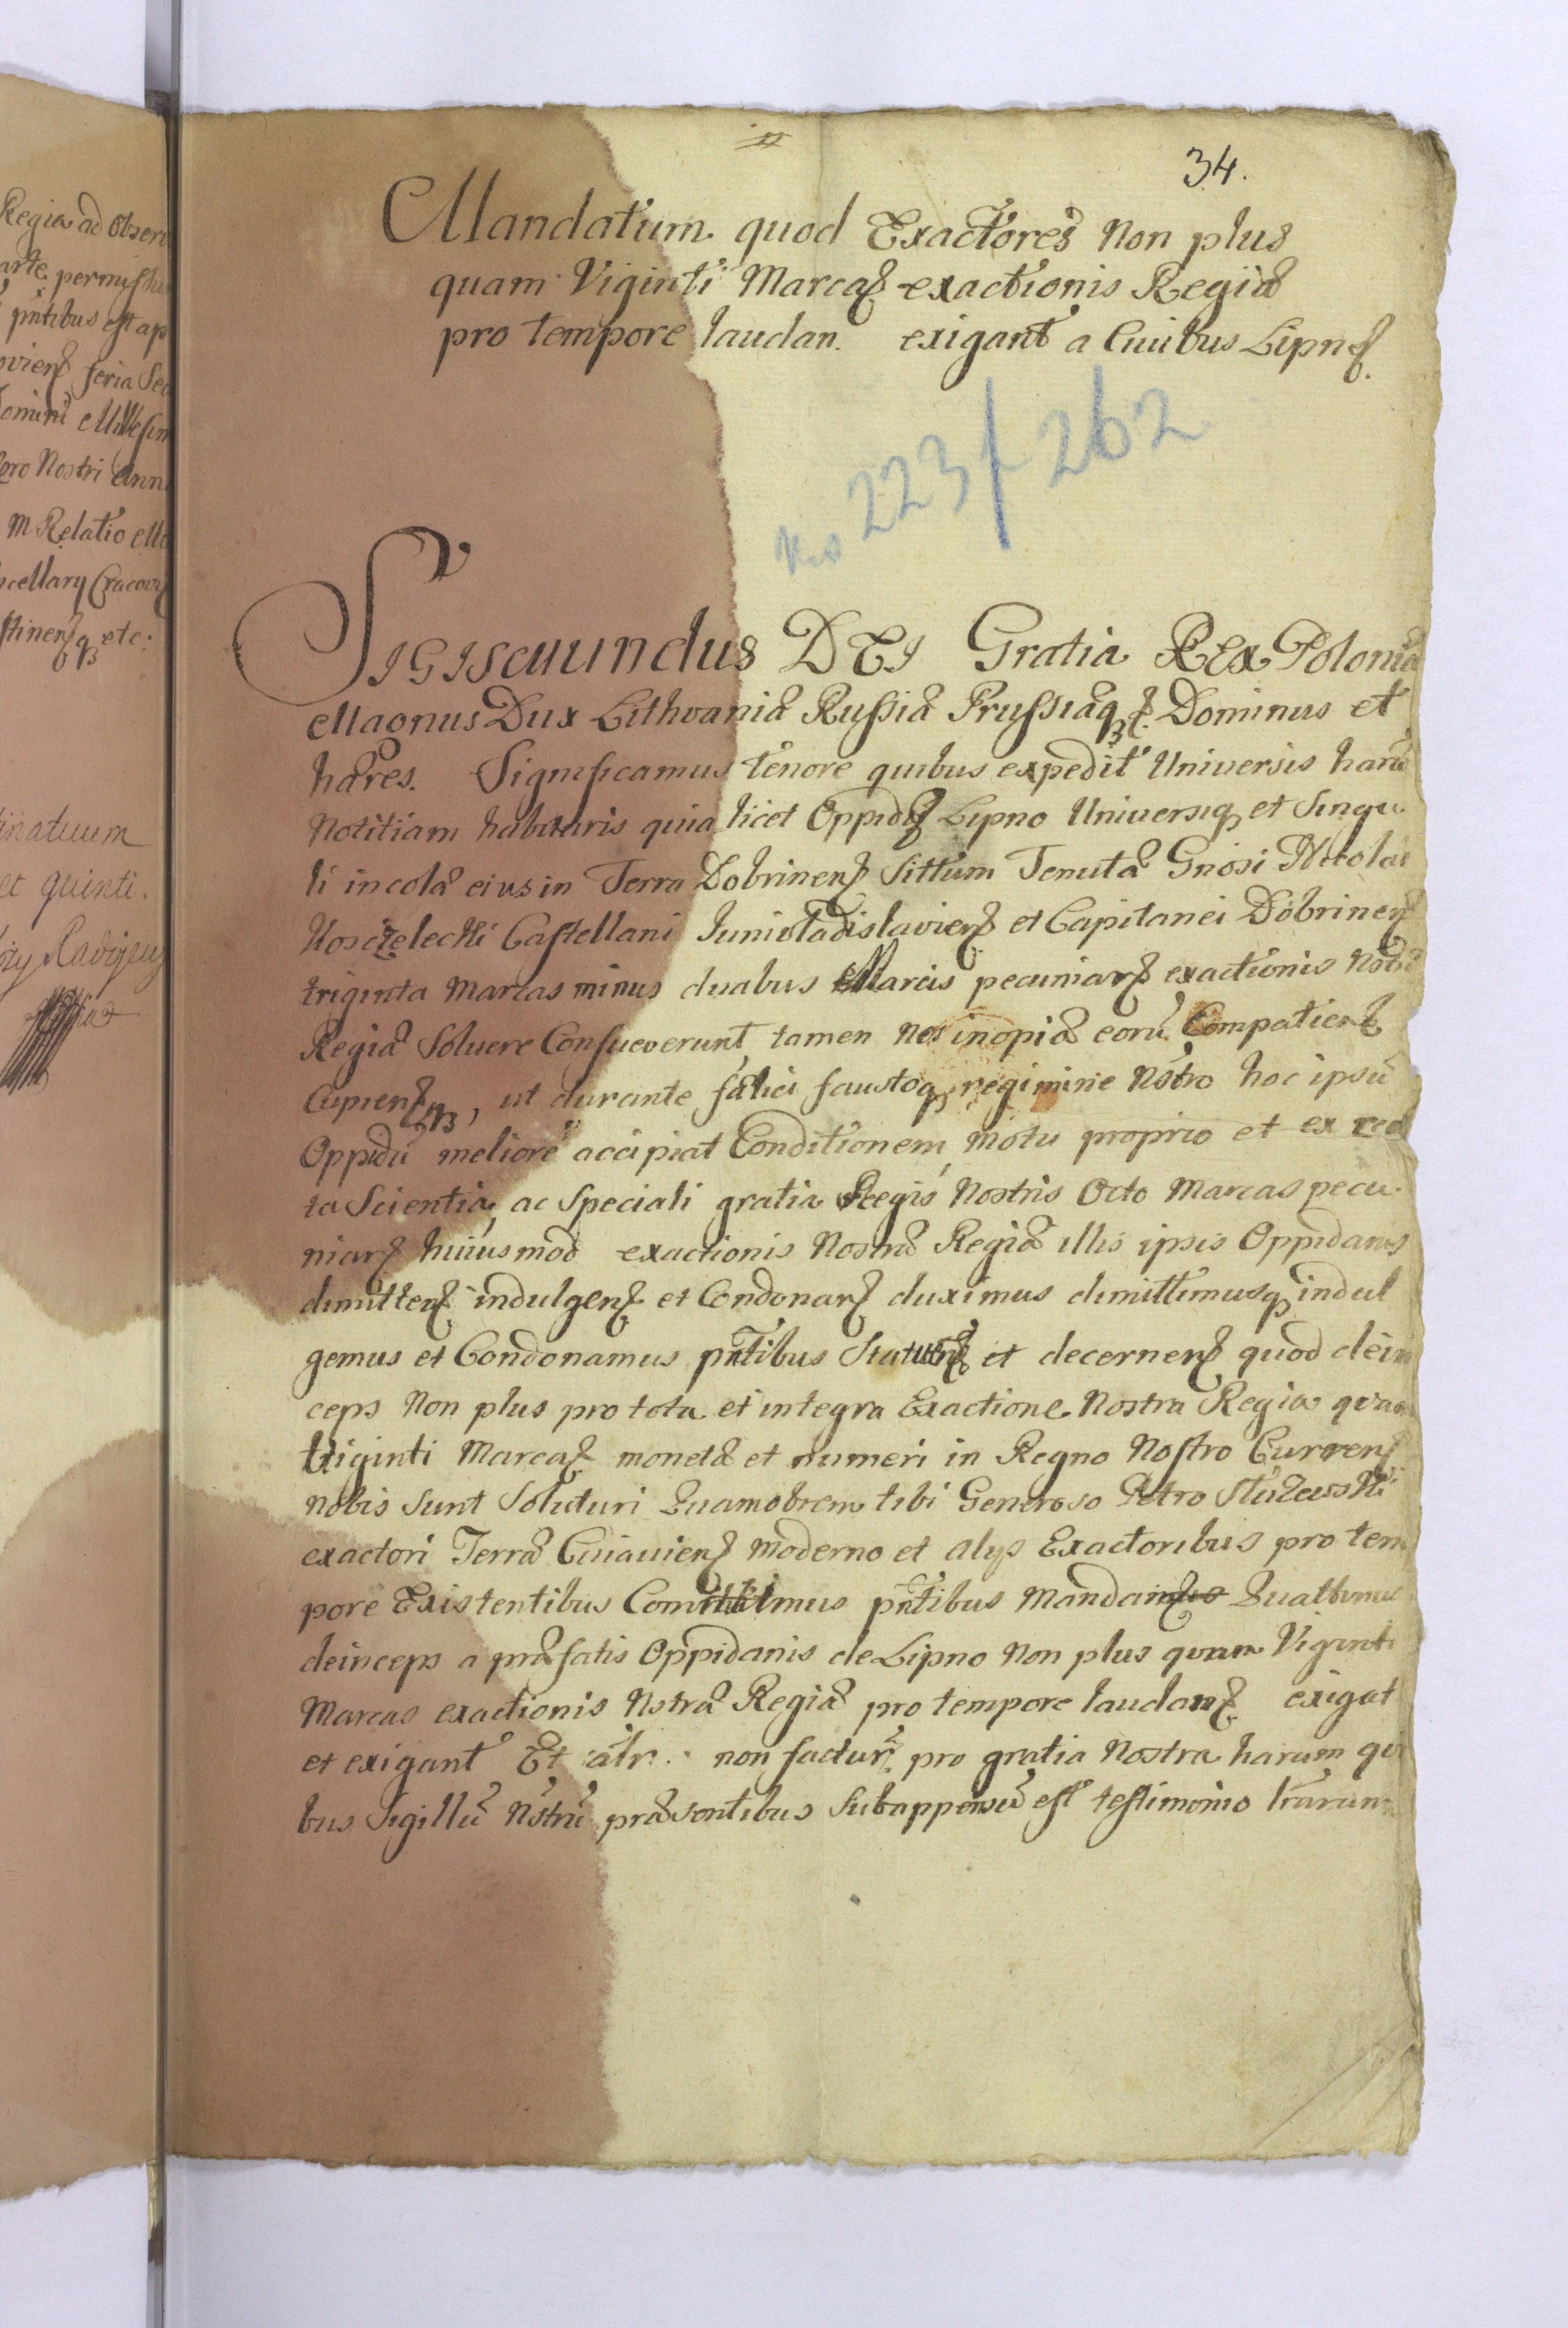 Regia ad obser
arte permissu
pntibus est ap
ovien feria Sec
Domini Millesim
ero Nostri Ann
M Relatio
ncellary Cracovi
stinen q etc:
et quinti.
34.
Mandatum quod Exactores Non plus
quam Viginti Marcas exactionis Regiæ
pro tempore laudan. exigant a Civibus Lipnen.
No 223/262
Sigismundus DEI Gratia REx Poloniæ
Magnus Dux Lithvaniæ Russiæ Prussiæq Dominus et
hæres. Significamus tenore quibus expedit Universis haru
Notitiam habituris quia licet Oppidu Lipno Universiq et Singu-
li incolæ eius in Terra Dobrinen Sittum Tenutæ Gnosi Nicolai
Koscielecki Castellani Juniuladislavien et Capitanei Dobrinen
triginta Marcas minus duabus Marcis pecuniar exactionis Nostræ
Regiæ Soluere Consueverunt, tamen Nos inopiæ eoru Compatien
Cupienq, ut durante fælici faustoq regimine Nstro hoc ipsu
Oppidu meliore accipiat Conditionem, motu proprio et ex cer
ta Scientia, ac Speciali gratia Regis Nostris Octo Marcas pecu-
niar huiusmod exactionis Nostræ Regiæ illis ipsis Oppidanis
dimitten indulgen et Condonar duximus dimittimusq indul
gemus et Condonamus pntibus Statuen et decernen quod dein
ceps Non plus pro tota et integra Exactione Nostra Regia quam
Viginti Marcas monetæ et numeri in Regno Nostro Curren
nobis Sunt Soluturi Quamobrem tibi Generoso Petro Służewski
exactori Terræ Cuiavien moderno et alys Exactoribus pro tem
pore Existentibus Comittimus pntibus Mandan Quattenus
deinceps a præfatis Oppidanis de Lipno Non plus quam Viginti
Marcas exactionis Nstræ Regiæ pro tempore laudan exigat
et exigant Et alr. non factur pro gratia Nostra harum qui
bus Sigillu Nstru præsentibus Subappensu est testimonio lrarum